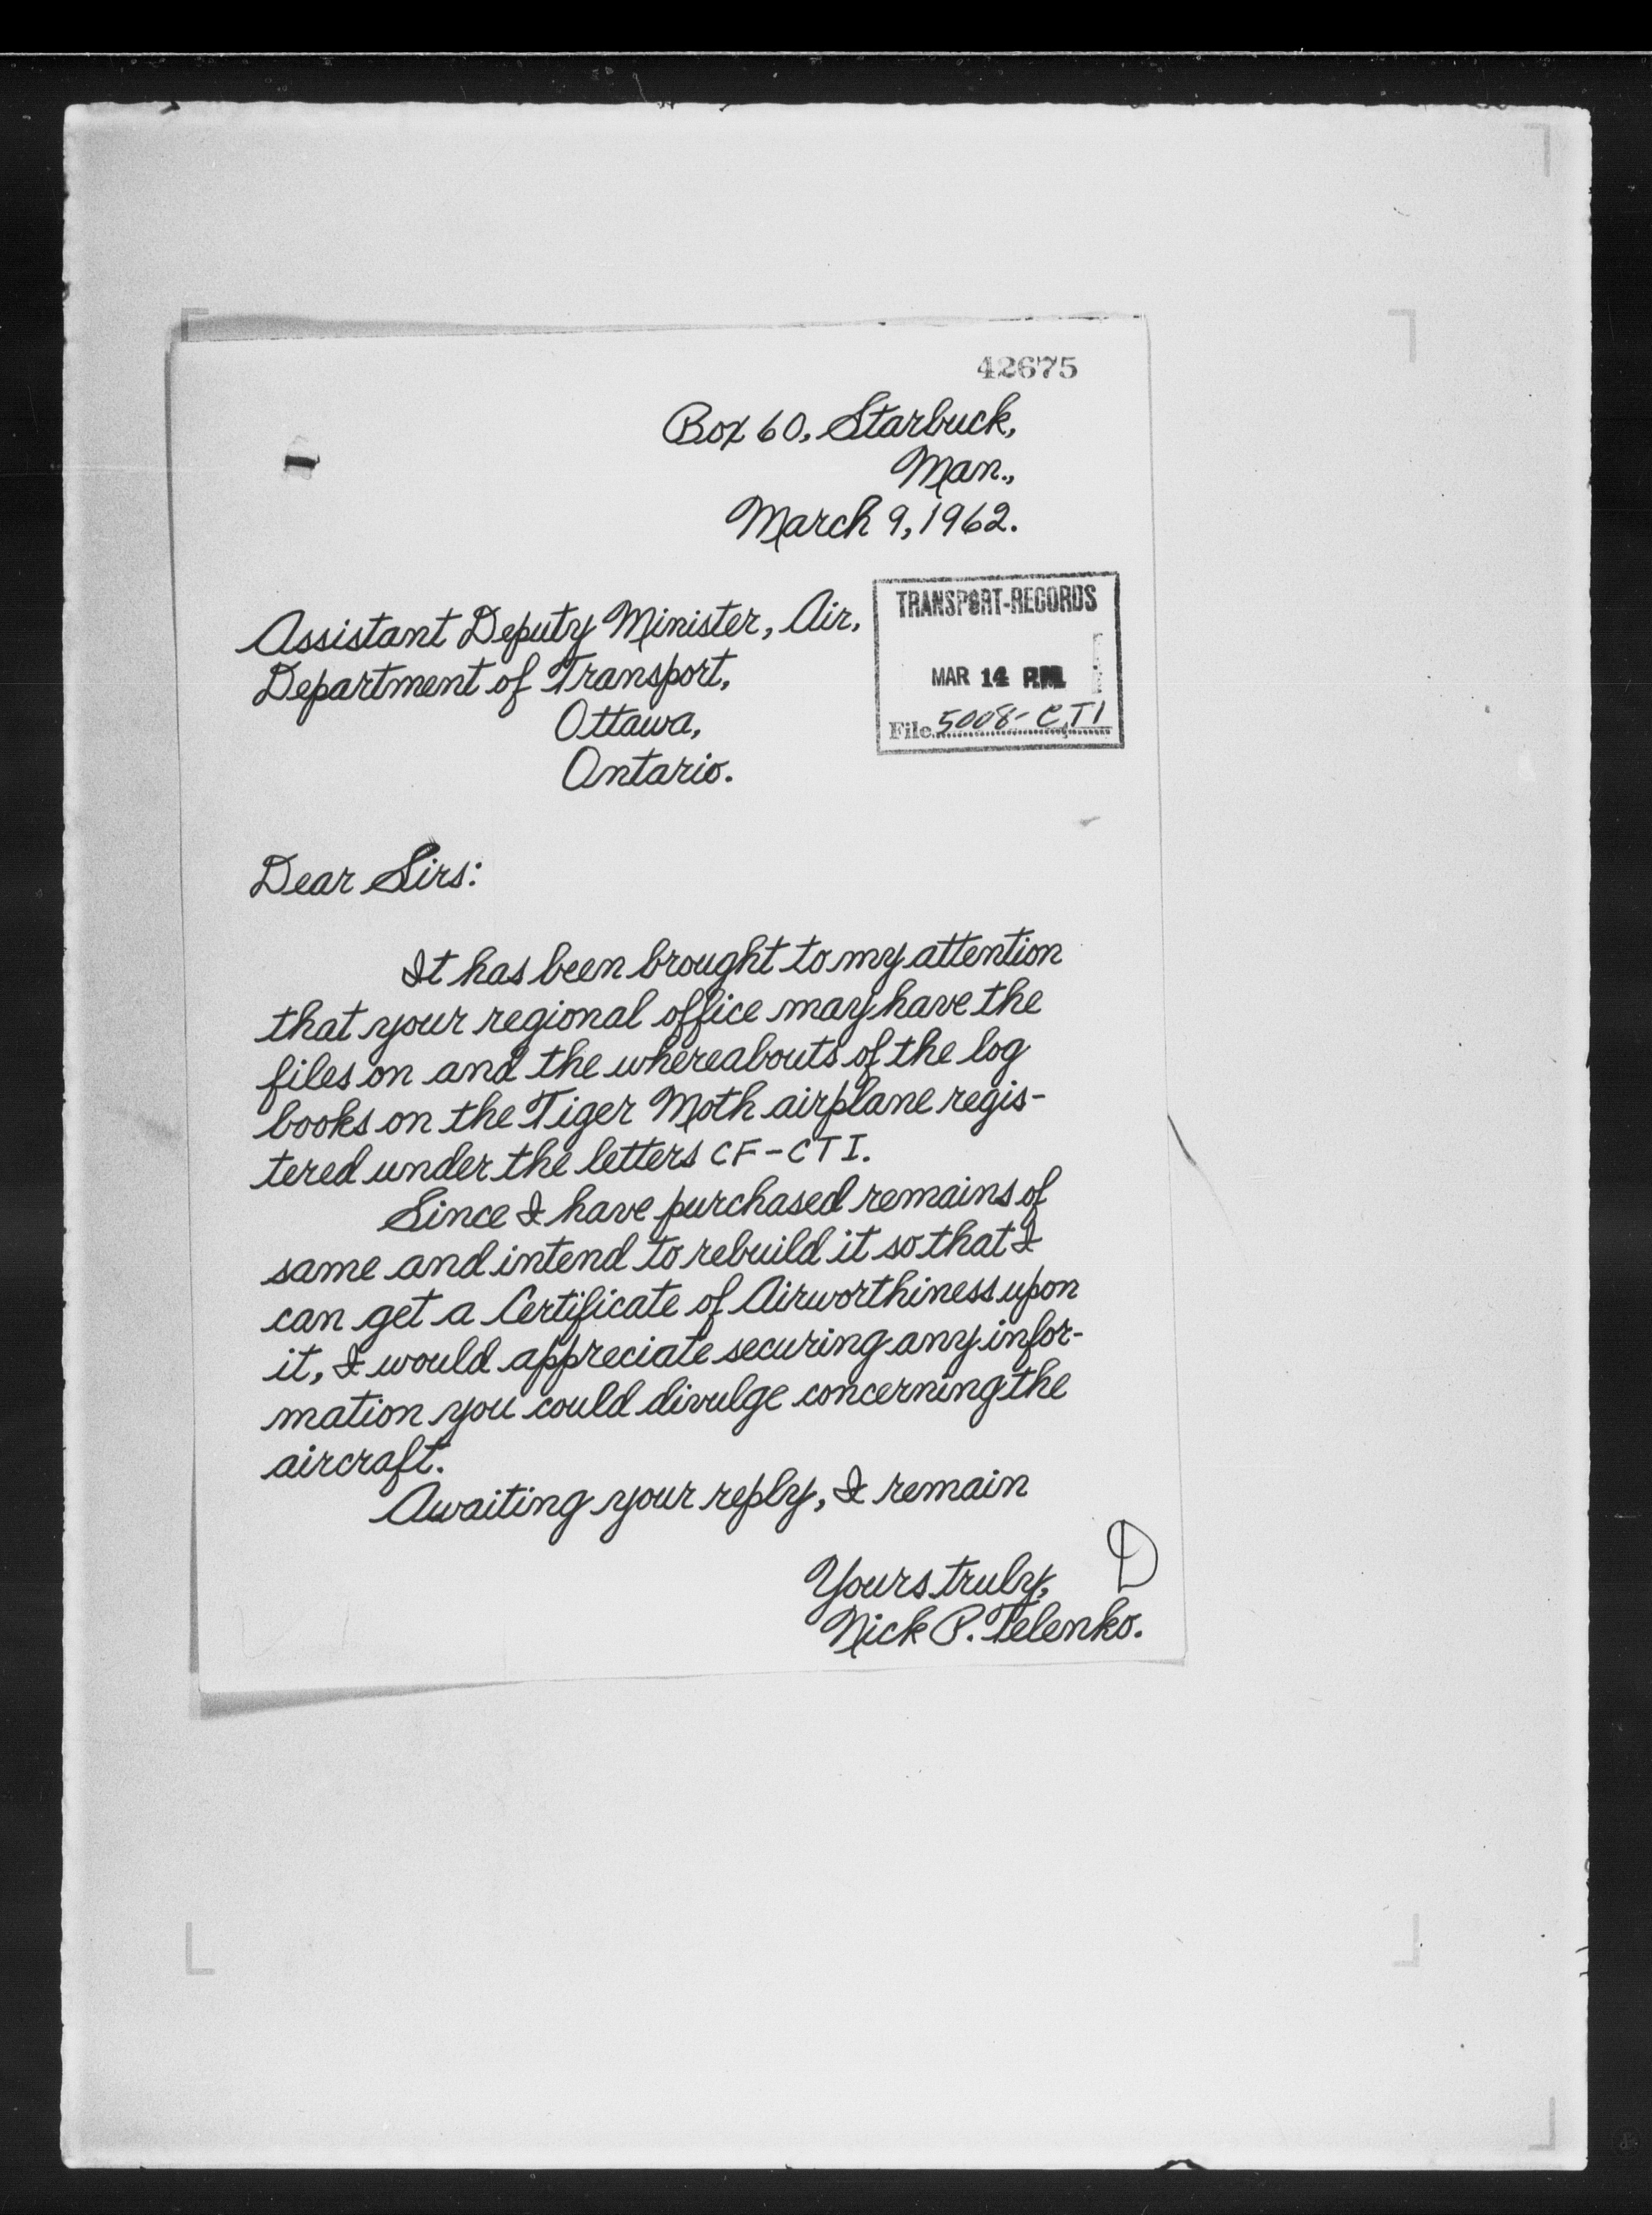 42675
Box 60, Starbuck,
Man.,
March 9, 1962.
TRANSPORT-RECORDS
MAR 14 P.M.
File 5008-CTI
Assistant Deputy Minister, Air,
Department of Transport,
Ottawa,
Ontario.
Dear Sirs:
It has been brought to my attention
that your regional office may have the
files on and the whereabouts of the log
books on the Tiger Moth airplane regis-
tered under the letters CF-CTI.
Since I have purchased remains of
same and intend to rebuild it so that I
can get a Certificate of Airworthiness upon
it, I would appreciate securing any infor-
mation you could divulge concerning the
aircraft.
Awaiting your reply, I remain
Yours truly,
D
Nick P. Telenko.